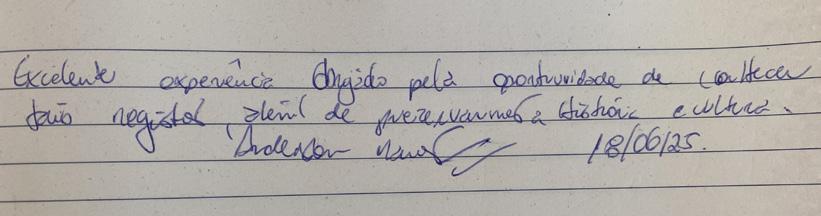 Excelente experiência Obrigado pela oportunidade de conhecer
registros, além de preservarmos a história e cultura.
Anderson 18/06/25.